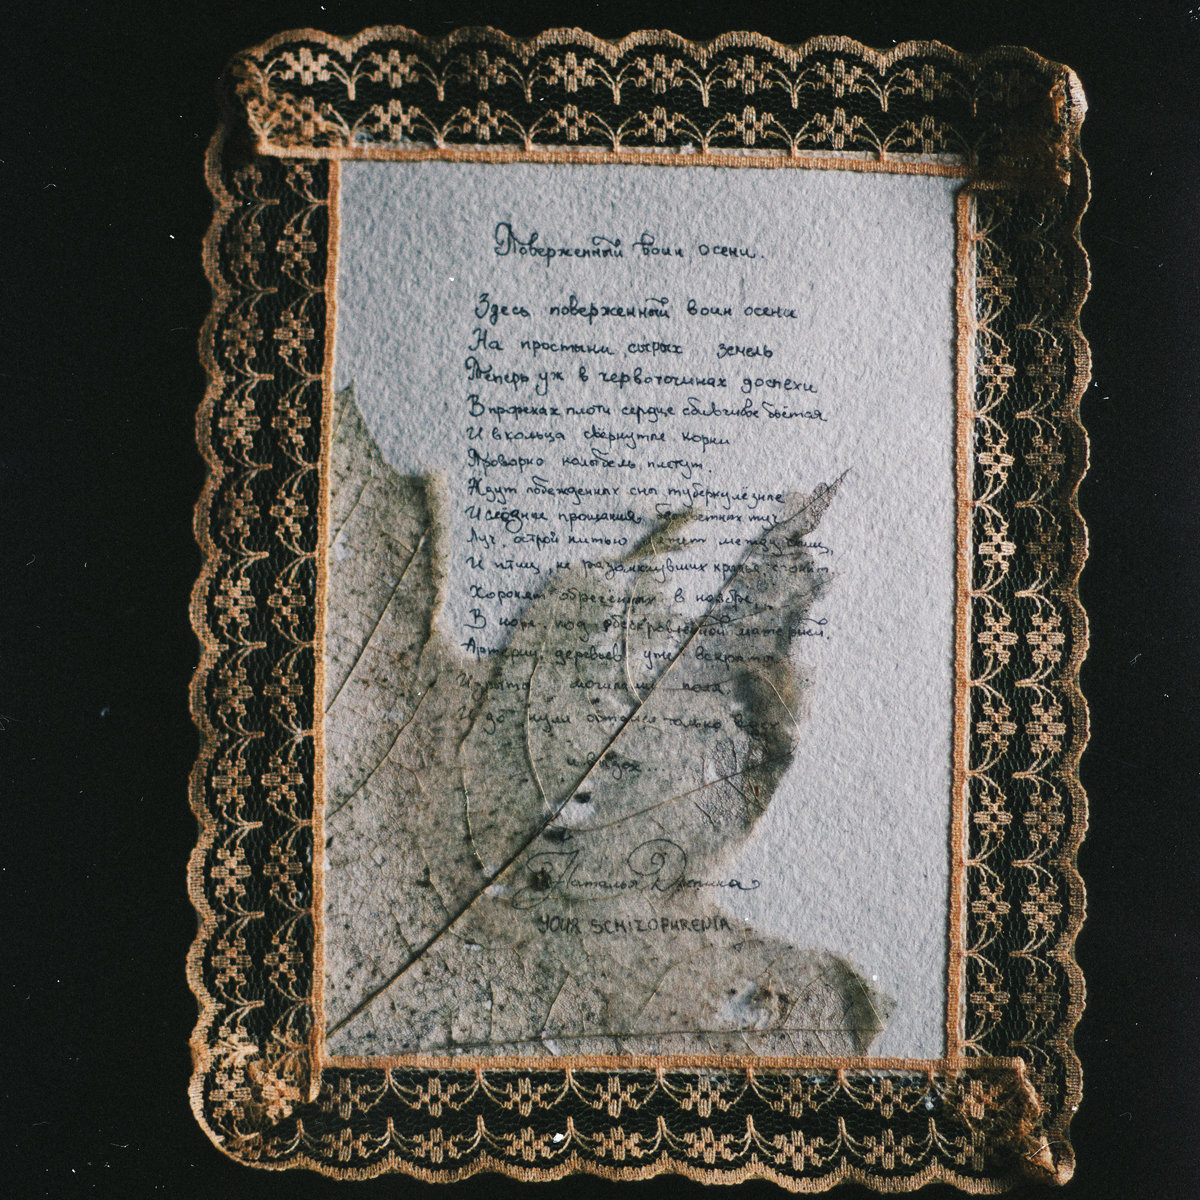 Поверженный воин осени.
Здесь поверженный воин осени
На простыни сырых земель
Теперь уж в червоточинах доспехи
В прорехах плоти сердце сбивчивое бьётся
И в кольца свёрнутые корни
Проворно колыбель плетут.
Ждут побеждённых сны туберкулёзные
И прощания туч
Луч острой нитью между
И птиц, не разомкнувших
Хоронят обреченных в ноябре,
В ночь под материей.
Артерии деревьев уже вскрыты
могилами поля,
до нули только вдох
и выдох...
Наталья
YOUR SCHIZOPHRENIA